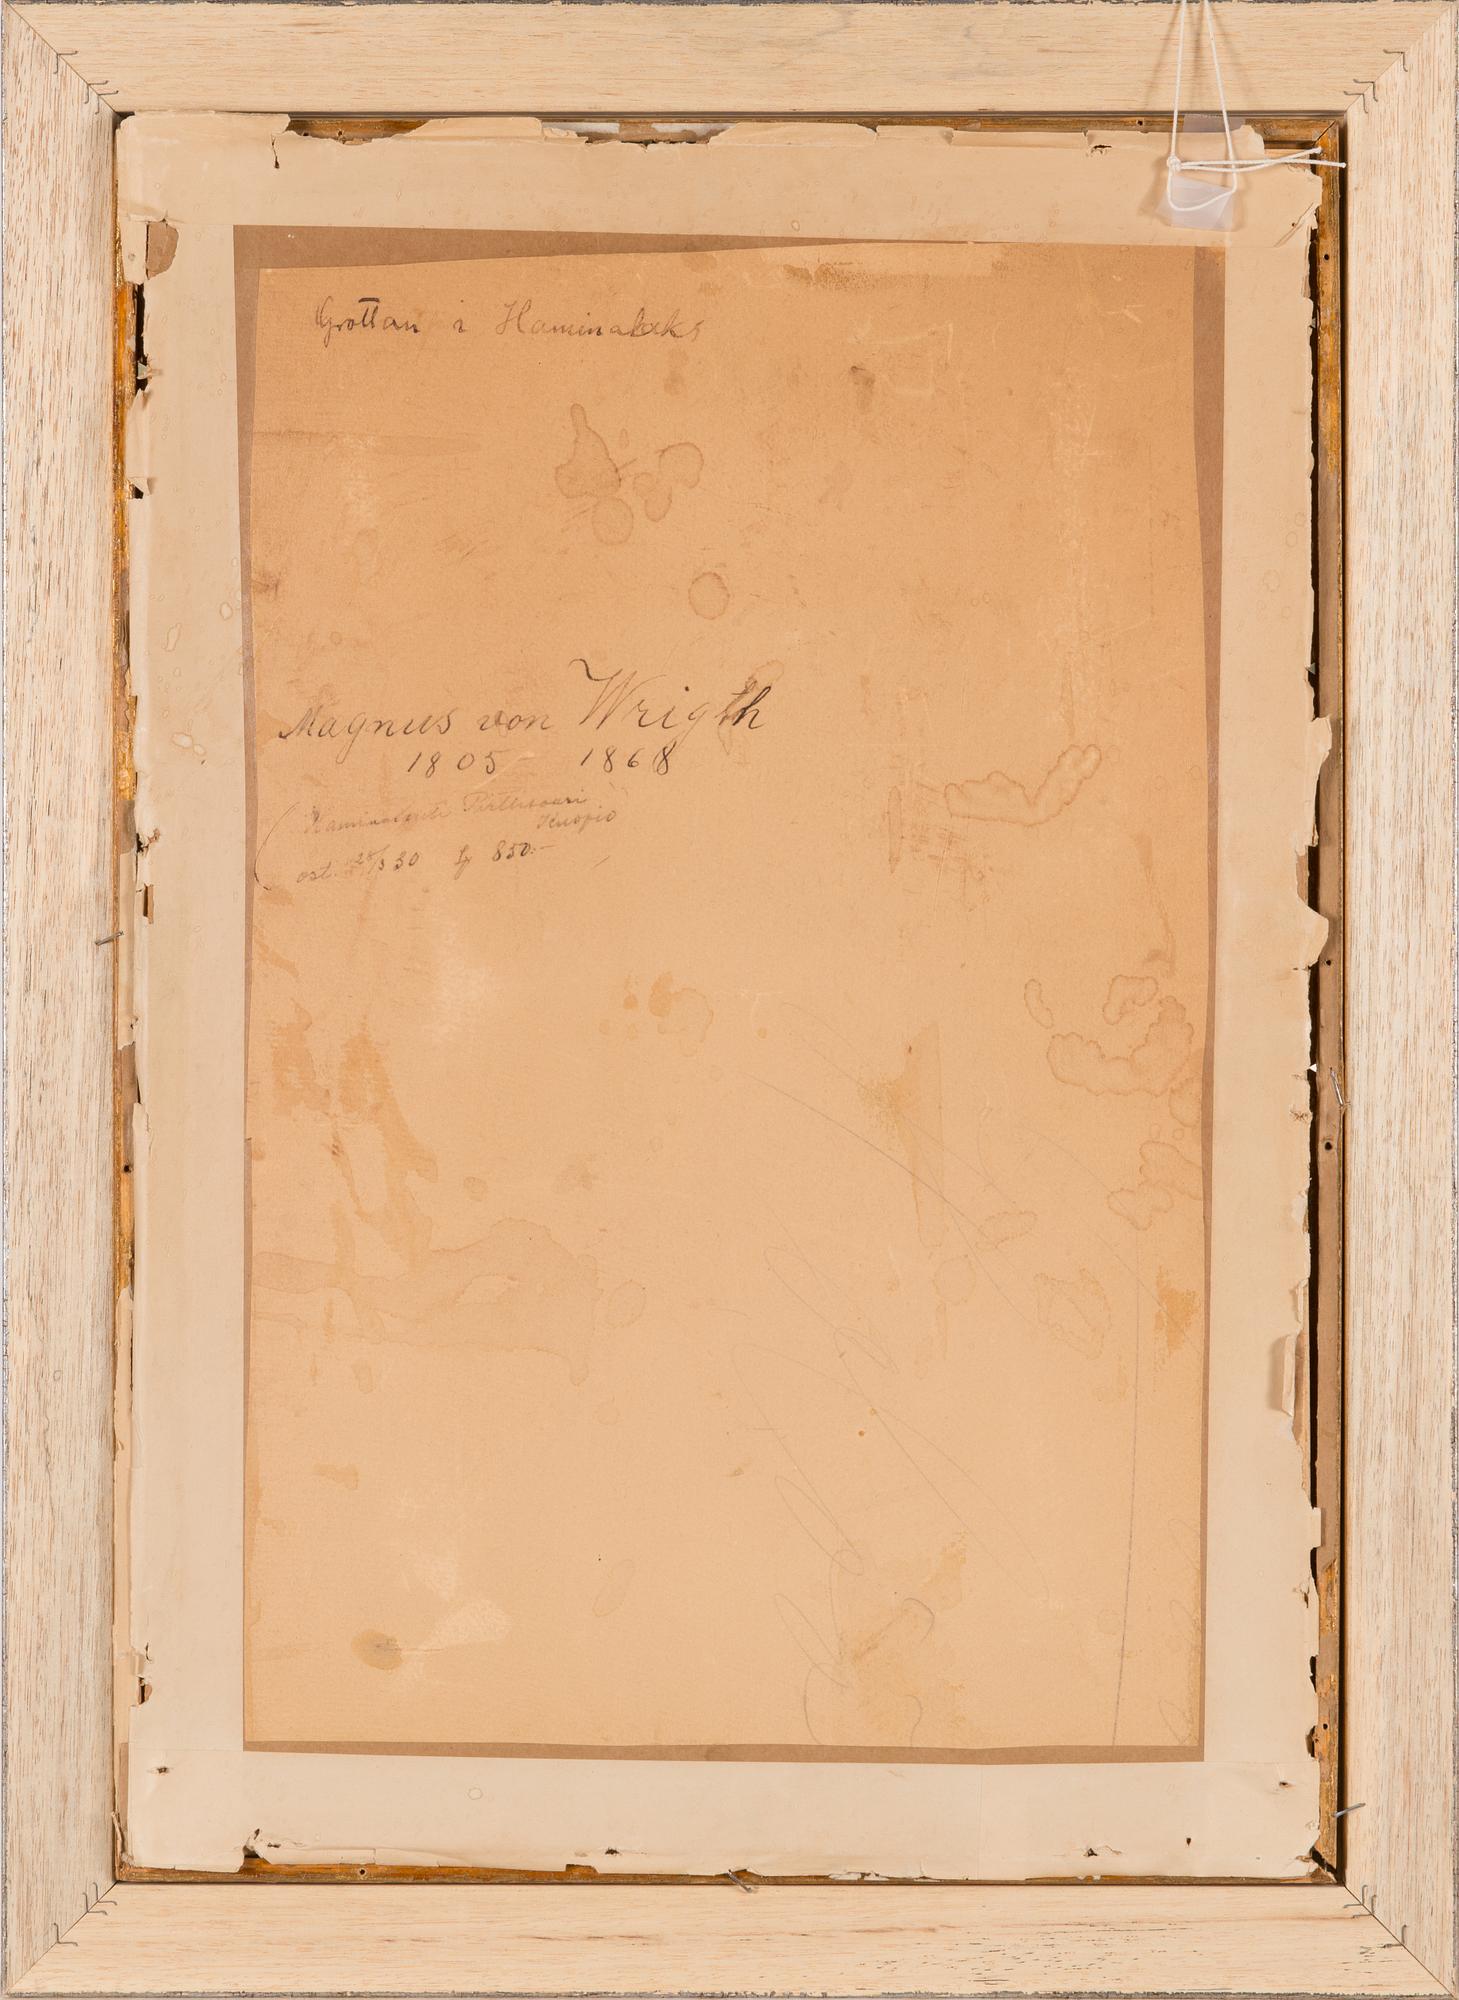 Grottan i Haminalaks
Magnus von Wrigth
1805 - 1868
(Haminalahti Pirttivuori
Kuopio
ost. 28/3 30 850:-